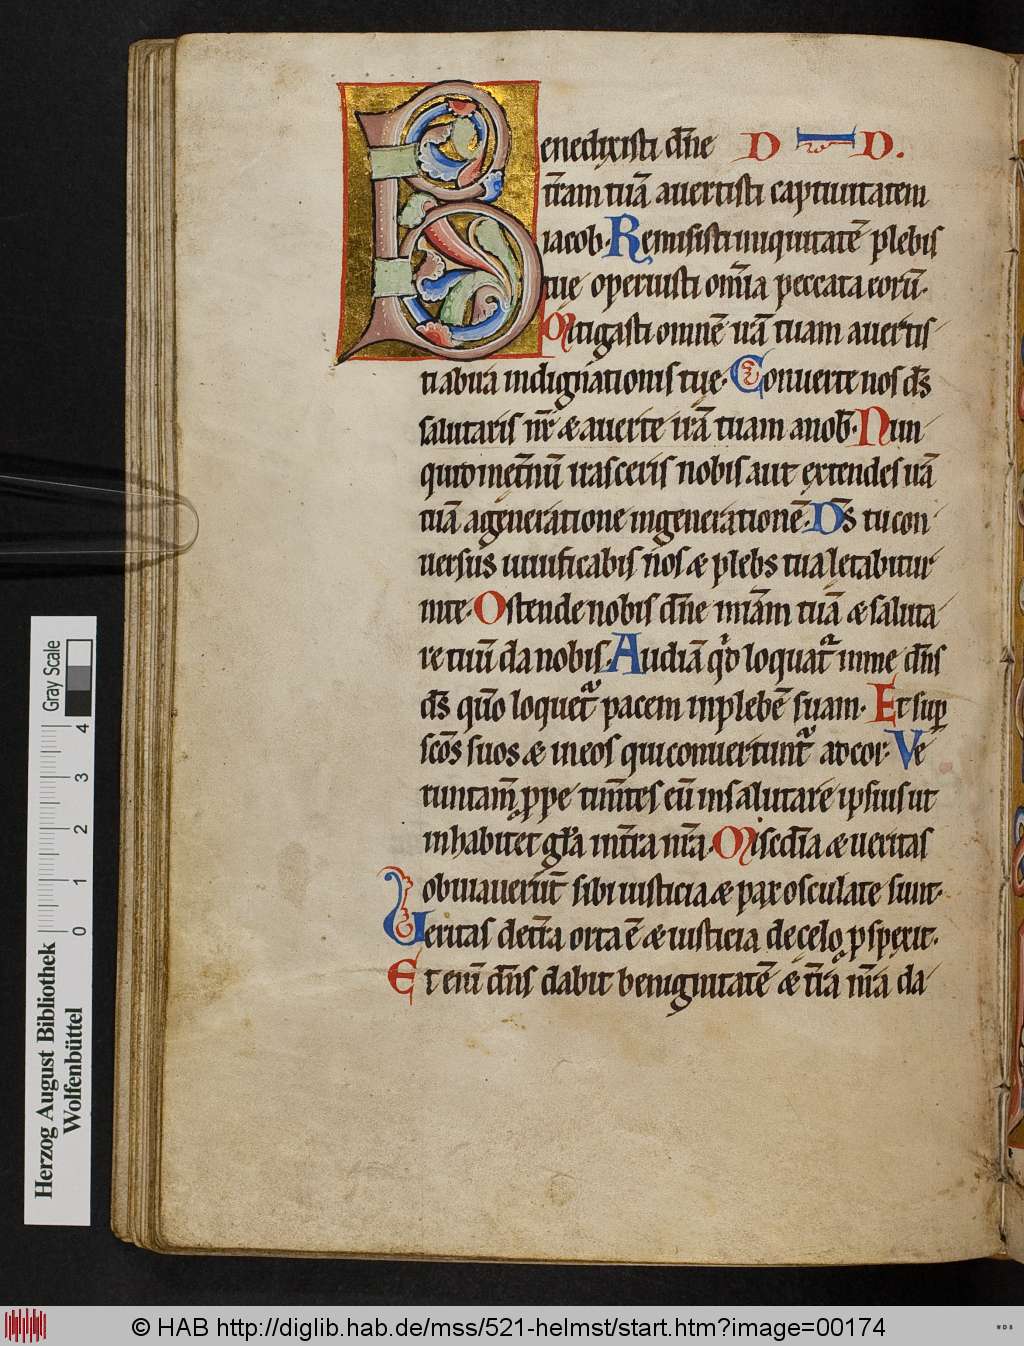 Benedixisti dn̄e D D.
t̄ram tuā auertisti captiuitatem
iacob· Remisisti iniquitatē plebis
tuę operuisti om̄ia peccata eorū·
Mitigasti omnē irā tuam auertis
ti abira indignationis tue· Conuerte nos ds̄
salutaris nr̄ & auerte irā tuam anob̄· Nun
quid inet̄nū irasceris nobis aut extendes irā
tuā ageneratione ingenerationē· Ds̄ tu con
uersus uiuificabis nos & plebs tua letabitur
inte· Ostende nobis dn̄e miām tuā & saluta
re tuū da nobis· Audiā qd̄ loquat̄ inme dn̄s
ds̄ qm̄o loquet̄ pacem inplebē suam· Et sup
scōs suos & in eos qui conuertunt̄ adcor· Ve
runtam̄ ppe tim̄tes eū insalutare ipsius ut
inhabitet gl̄a int̄ra nr̄a· Miscdīa & ueritas
obuiauerūt sibi iusticia & pax osculate sunt·
Veritas det̄ra orta ē & iusticia de celo pspexit·
Et eni dn̄s dabit benignitatē & t̄ra nr̄a da
Herzog August Bibliothek
Wolfenbüttel
0 1 2 3 4
Gray Scale
© HAB http://diglib.hab.de/mss/521-helmst/start.htm?image=00174